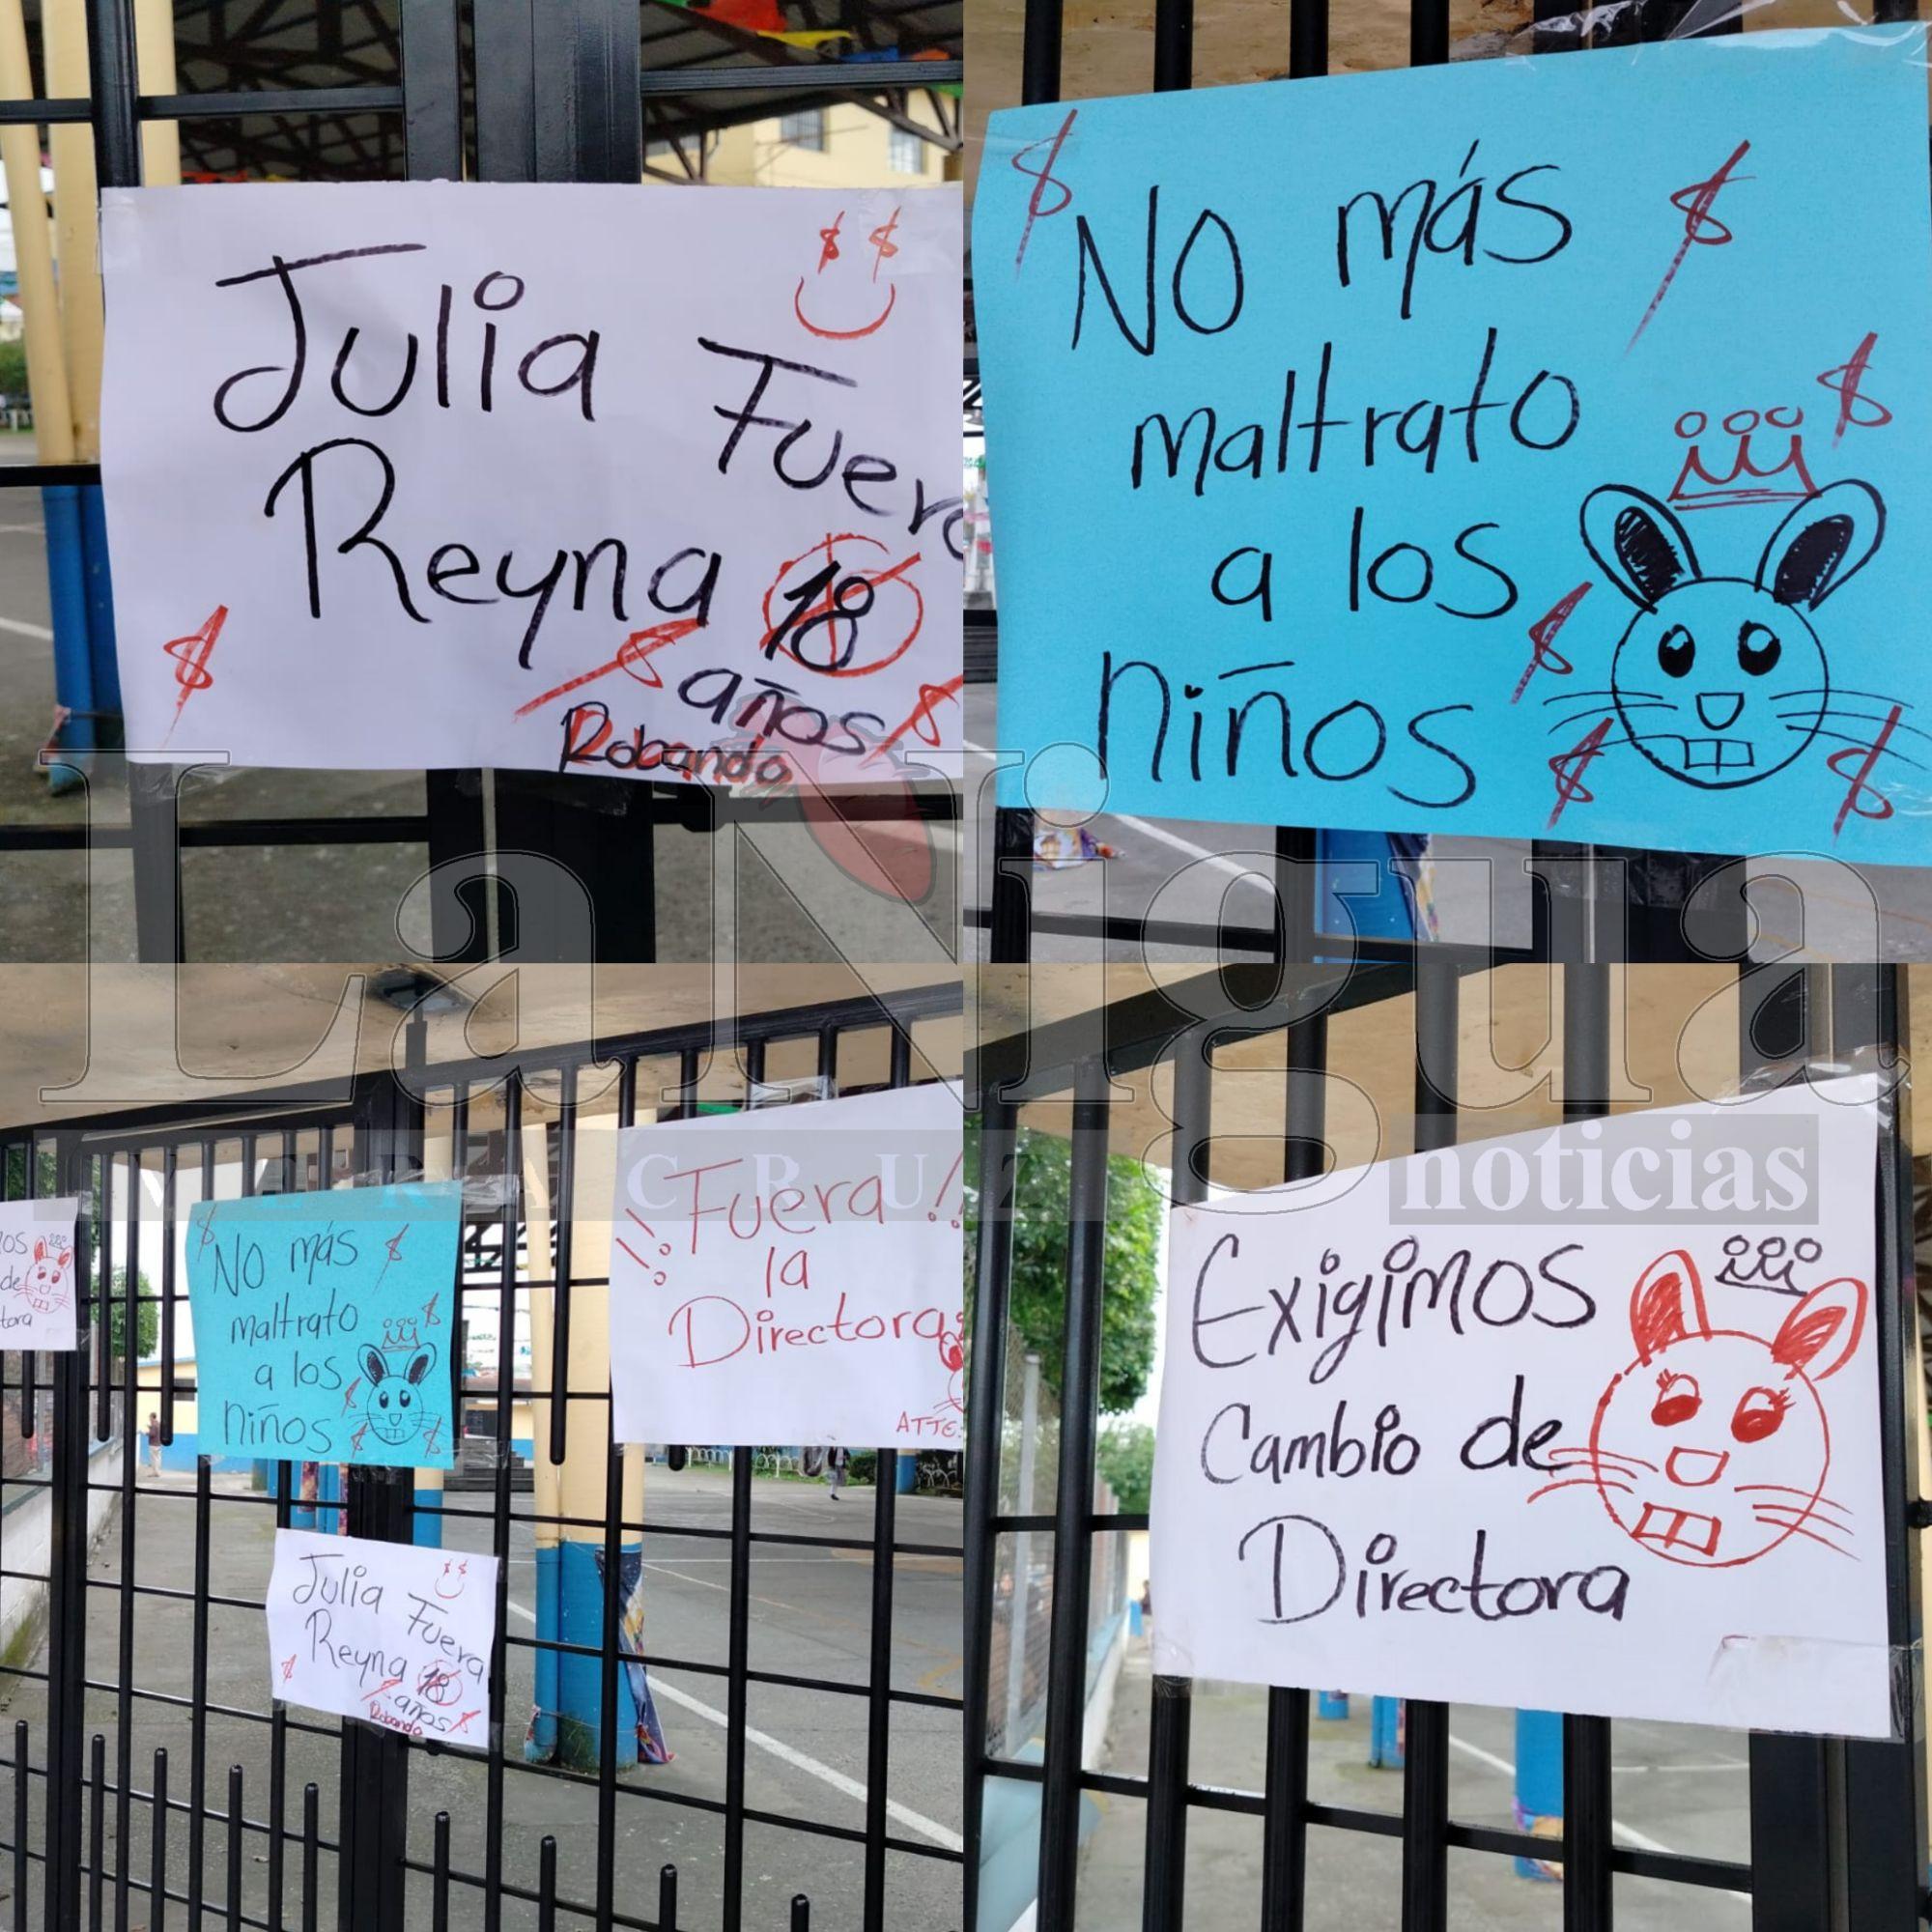 $ $
Julia Fuera
Reyna 18
$ $ años $
Robando
$ No más $
maltrato $
a los $
Niños $ $
La Nigua
VERACRUZ noticias
de
tora
$ No más $
maltrato $
a los $
Niños $ $
¡¡Fuera!!
la
Directora
ATTE:
$ $
Julia Fuera
Reyna 18
$ $ años $
Robando
Exigimos
Cambio de
Directora